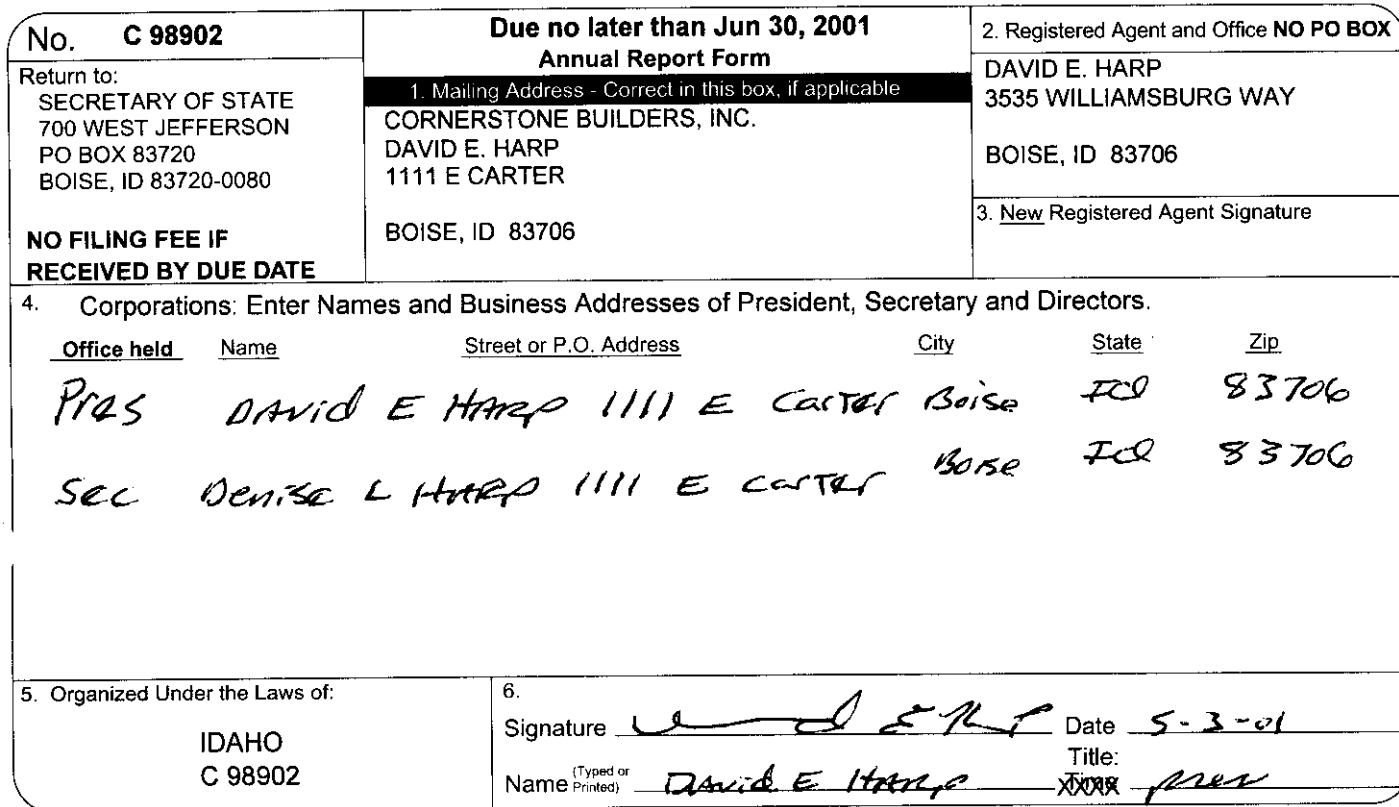 No. C 98902
Return to:
SECRETARY OF STATE
700 WEST JEFFERSON
PO BOX 83720
BOISE, ID 83720-0080
NO FILING FEE IF
RECEIVED BY DUE DATE
Due no later than Jun 30, 2001
Annual Report Form
1. Mailing Address - Correct in this box, if applicable
CORNERSTONE BUILDERS, INC.
DAVID E. HARP
1111 E CARTER
BOISE, ID 83706
2. Registered Agent and Office NO PO BOX
DAVID E. HARP
3535 WILLIAMSBURG WAY
BOISE, ID 83706
3. New Registered Agent Signature
4. Corporations: Enter Names and Business Addresses of President, Secretary and Directors.
Office held Name Street or P.O. Address City State Zip
Pres DAvid E HARP 1111 E CarTer Boise Id 83706
Sec Denise L HARP 1111 E CarTer Boise Id 83706
5. Organized Under the Laws of:
IDAHO
C 98902
6.
Signature Date 5-3-01
Title:
Name (Typed or Printed) DAvid E HARP pres